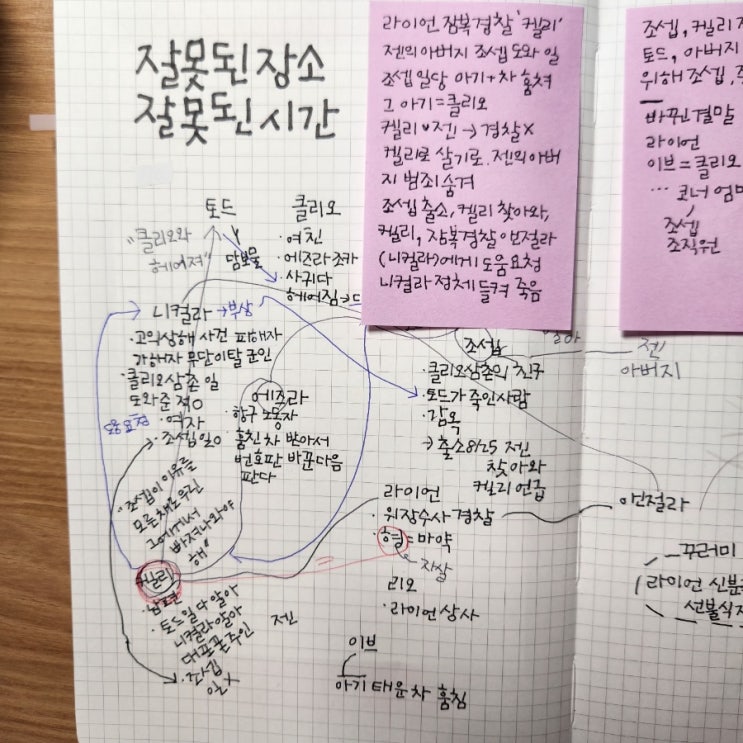 잘못된 장소
잘못된 시간
라이언 잠복경찰 '켈리'
젠의 아버지 조셉 도와 일
조셉일당 아기+차 훔쳐
그 아기=클리오
켈리♥젠→경찰X
켈리로 살기로. 젠의 아버
지 범죄 숨겨
조셉 출소, 켈리 찾아와,
켈리, 잠복경찰 안젤라
(니컬라)에게 도움요청
니컬라 정체 들켜 죽음
조셉, 켈리
토드, 아버지
위해 조셉,
바뀐결말
라이언
이브=클리오
… 코너 엄마
조셉
조직원
토드
"클리오와
헤어져"
담보물
클리오
·여친
·에즈라조카
·사귀다
·헤어짐→
니컬라→부상
·고의상해 사건 피해자
가해자 무단이탈 군인
·클리오삼촌 일
도와준 적O
·여자
·조셉일O
도움요청
에즈라
·항구 노동자
·훔친차 받아서
번호판 바꾼다음
판다
조셉
·클리오삼촌의 친구
·토드가 죽인사람
·감옥
→출소8/25 젠
찾아와
켈리 언급
젠
아버지
"조셉이 이유를
모른채로 우린
그에게서
빠져나와야
해"
켈리
·남편
·토드일 다 알아
·니컬라 알아
·대포폰 주인
·조셉
일X
젠
라이언
·위장수사 경찰
·형=마약
자살
리오
·라이언상사
안젤라
꾸러미
라이언 신분
선불식
이브
아기 태운 차 훔침